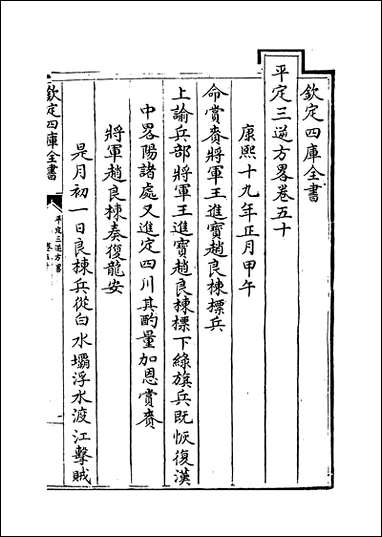 欽定四庫全書
平定三逆方畧卷五十
康熙十九年正月甲午
命賞賚將軍王進寳趙良棟標兵
上諭兵部將軍王進寳趙良棟標下綠旗兵既恢復漢
中畧陽諸處又進定四川其酌量加恩賞賚
將軍趙良棟奏復龍安
是月初一日良棟兵從白水壩浮水渡江擊賊
欽定四庫全書
平定三逆方畧
卷五十
一